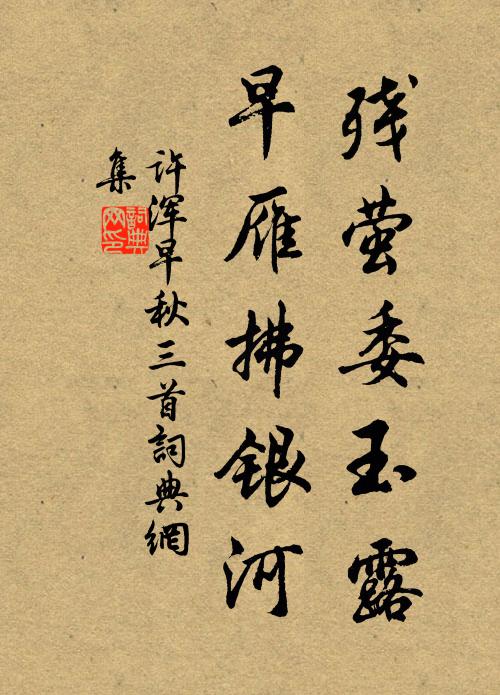 残萤委玉露
早雁拂银河
许浑早秋三首詞典網
集
詞典网印